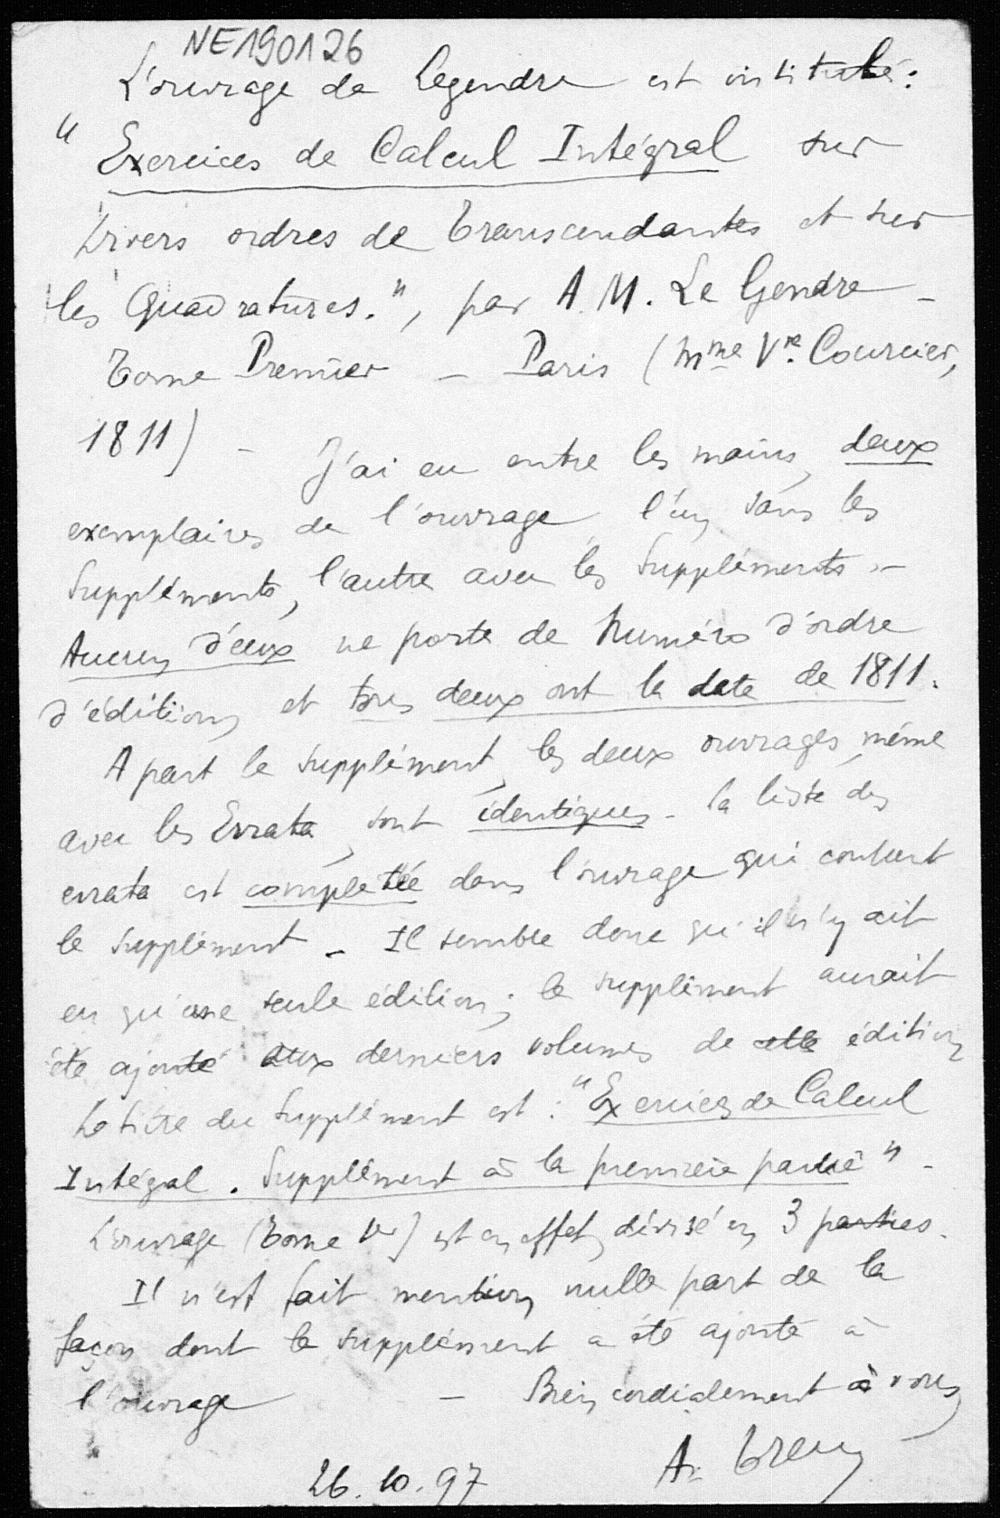 NE190126
L'ouvrage de Legendre est intitulé :
" Exercices de Calcul Intégral sur
divers ordres de Transcendantes et sur
les Quadratures.", par A. M. Le Gendre -
Tome Premier - Paris (Mme Ve. Courcier,
1811) - J'ai eu entre les mains, deux
exemplaires de l'ouvrage l'un sans les
Suppléments, l'autre avec les Suppléments. -
Aucun d'eux ne porte de Numéro d'ordre
d'édition, et tous deux ont la date de 1811.
A part le Supplément, les deux ouvrages, même
avec les Errata, sont identiques - la liste des
errata est complétée dans l'ouvrage qui contient
le supplément - Il semble donc qu'il n'y ait
eu qu'une seule édition ; le supplément aurait
été ajouté aux derniers volumes de cette édition
Le titre du Supplément est : "Exercices de Calcul
Intégral. Supplément à la première partie" -
L'ouvrage (Tome 1er) est en effet, divisé en 3 parties.
Il n'est fait mention nulle part de la
façon dont le supplément a été ajouté à
l'ouvrage - Bien cordialement à vous
26.10.97 A.